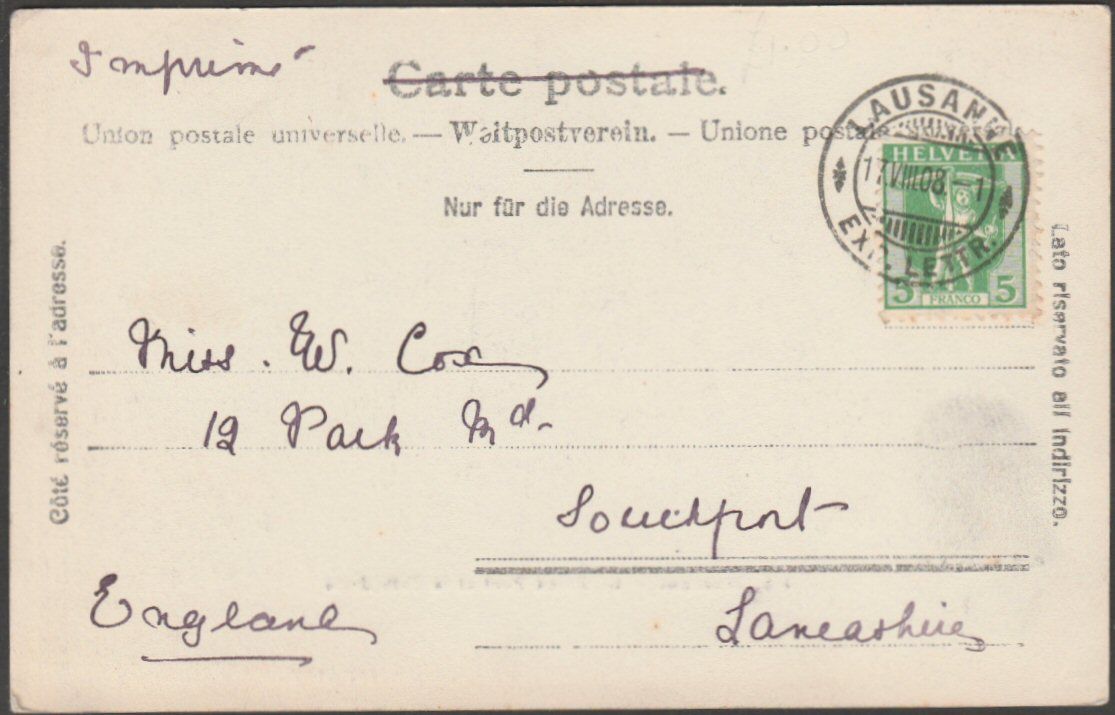 Imprimé
Carte postale.
Union postale universelle. — Weltpostverein. — Unione postale
Nur für die Adresse.
LAUSANNE
17.VIII.08.-1
EXP. LETTR.
HELVETIA
5 FRANCO 5
Côté réservé à l'adresse.
Lato riservato all indirizzo.
Miss. W. Cox
12 Park Rd.
Southport
Lancashire
England